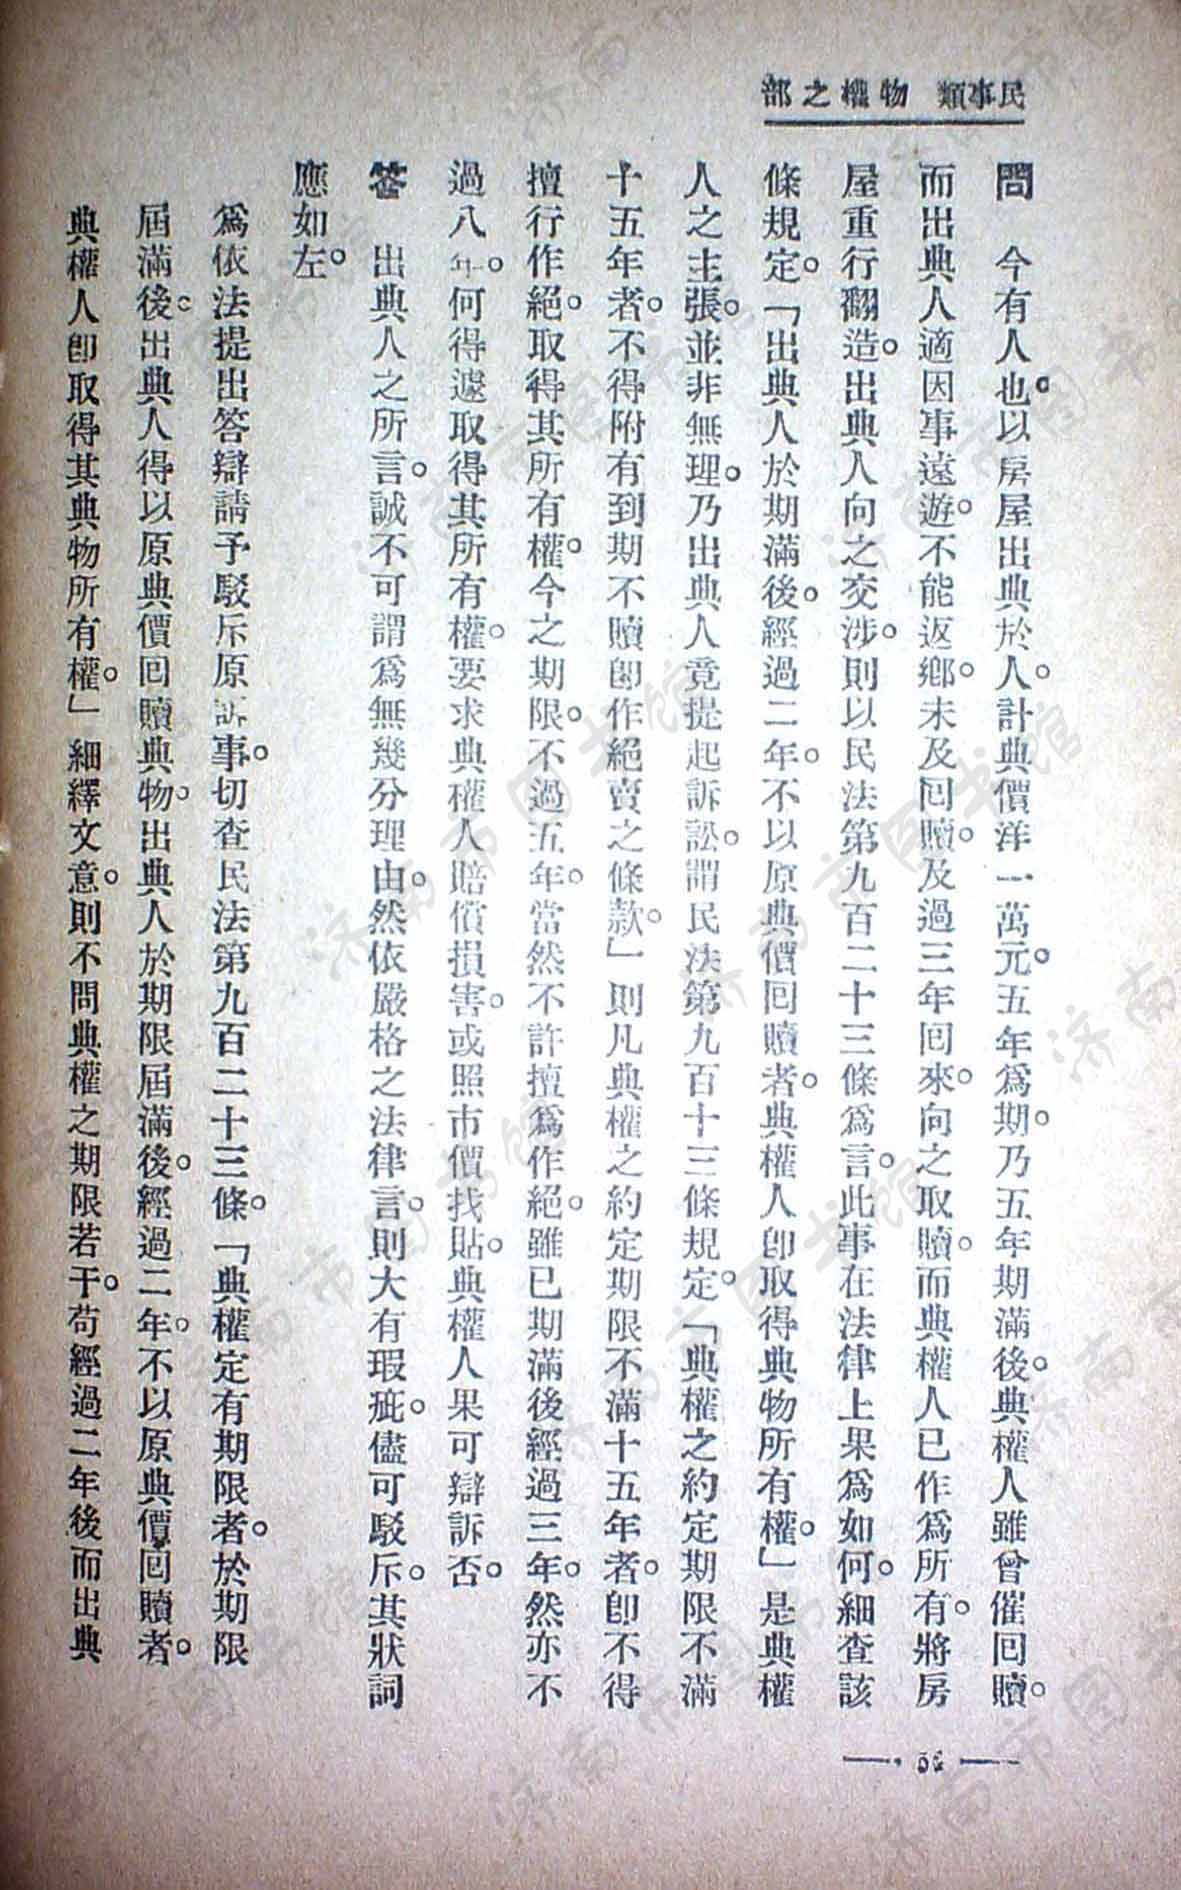 民事類 物權之部
問　今有人也。以房屋出典於人。計典價洋一萬元。五年爲期。乃五年期滿後。典權人雖曾催回贖。
而出典人適因事遠遊。不能返鄉。未及回贖。及過三年回來。向之取贖。而典權人已作爲所有。將房
屋重行翻造。出典人向之交涉。則以民法第九百二十三條爲言。此事在法律上果爲如何。細查該
條規定。「出典人於期滿後。經過二年。不以原典價回贖者。典權人卽取得典物所有權。」是典權
人之主張。並非無理。乃出典人竟提起訴訟。謂民法第九百十三條規定。「典權之約定期限不滿
十五年者。不得附有到期不贖卽作絕賣之條款。」則凡典權之約定期限不滿十五年者。卽不得
擅行作絕。取得其所有權。今之期限。不過五年。當然不許擅爲作絕。雖已期滿後經過三年。然亦不
過八年。何得遽取得其所有權。要求典權人賠償損害。或照市價找貼。典權人果可辯訴否。
答　出典人之所言。誠不可謂爲無幾分理由。然依嚴格之法律言。則大有瑕疵。儘可駁斥。其狀詞
應如左。
爲依法提出答辯請予駁斥原訴事。切查民法第九百二十三條。「典權定有期限者。於期限
屆滿後。出典人得以原典價回贖典物。出典人於期限屆滿後。經過二年。不以原典價回贖者。
典權人卽取得其典物所有權。」細繹文意。則不問典權之期限若干。苟經過二年後而出典
济南市图书馆